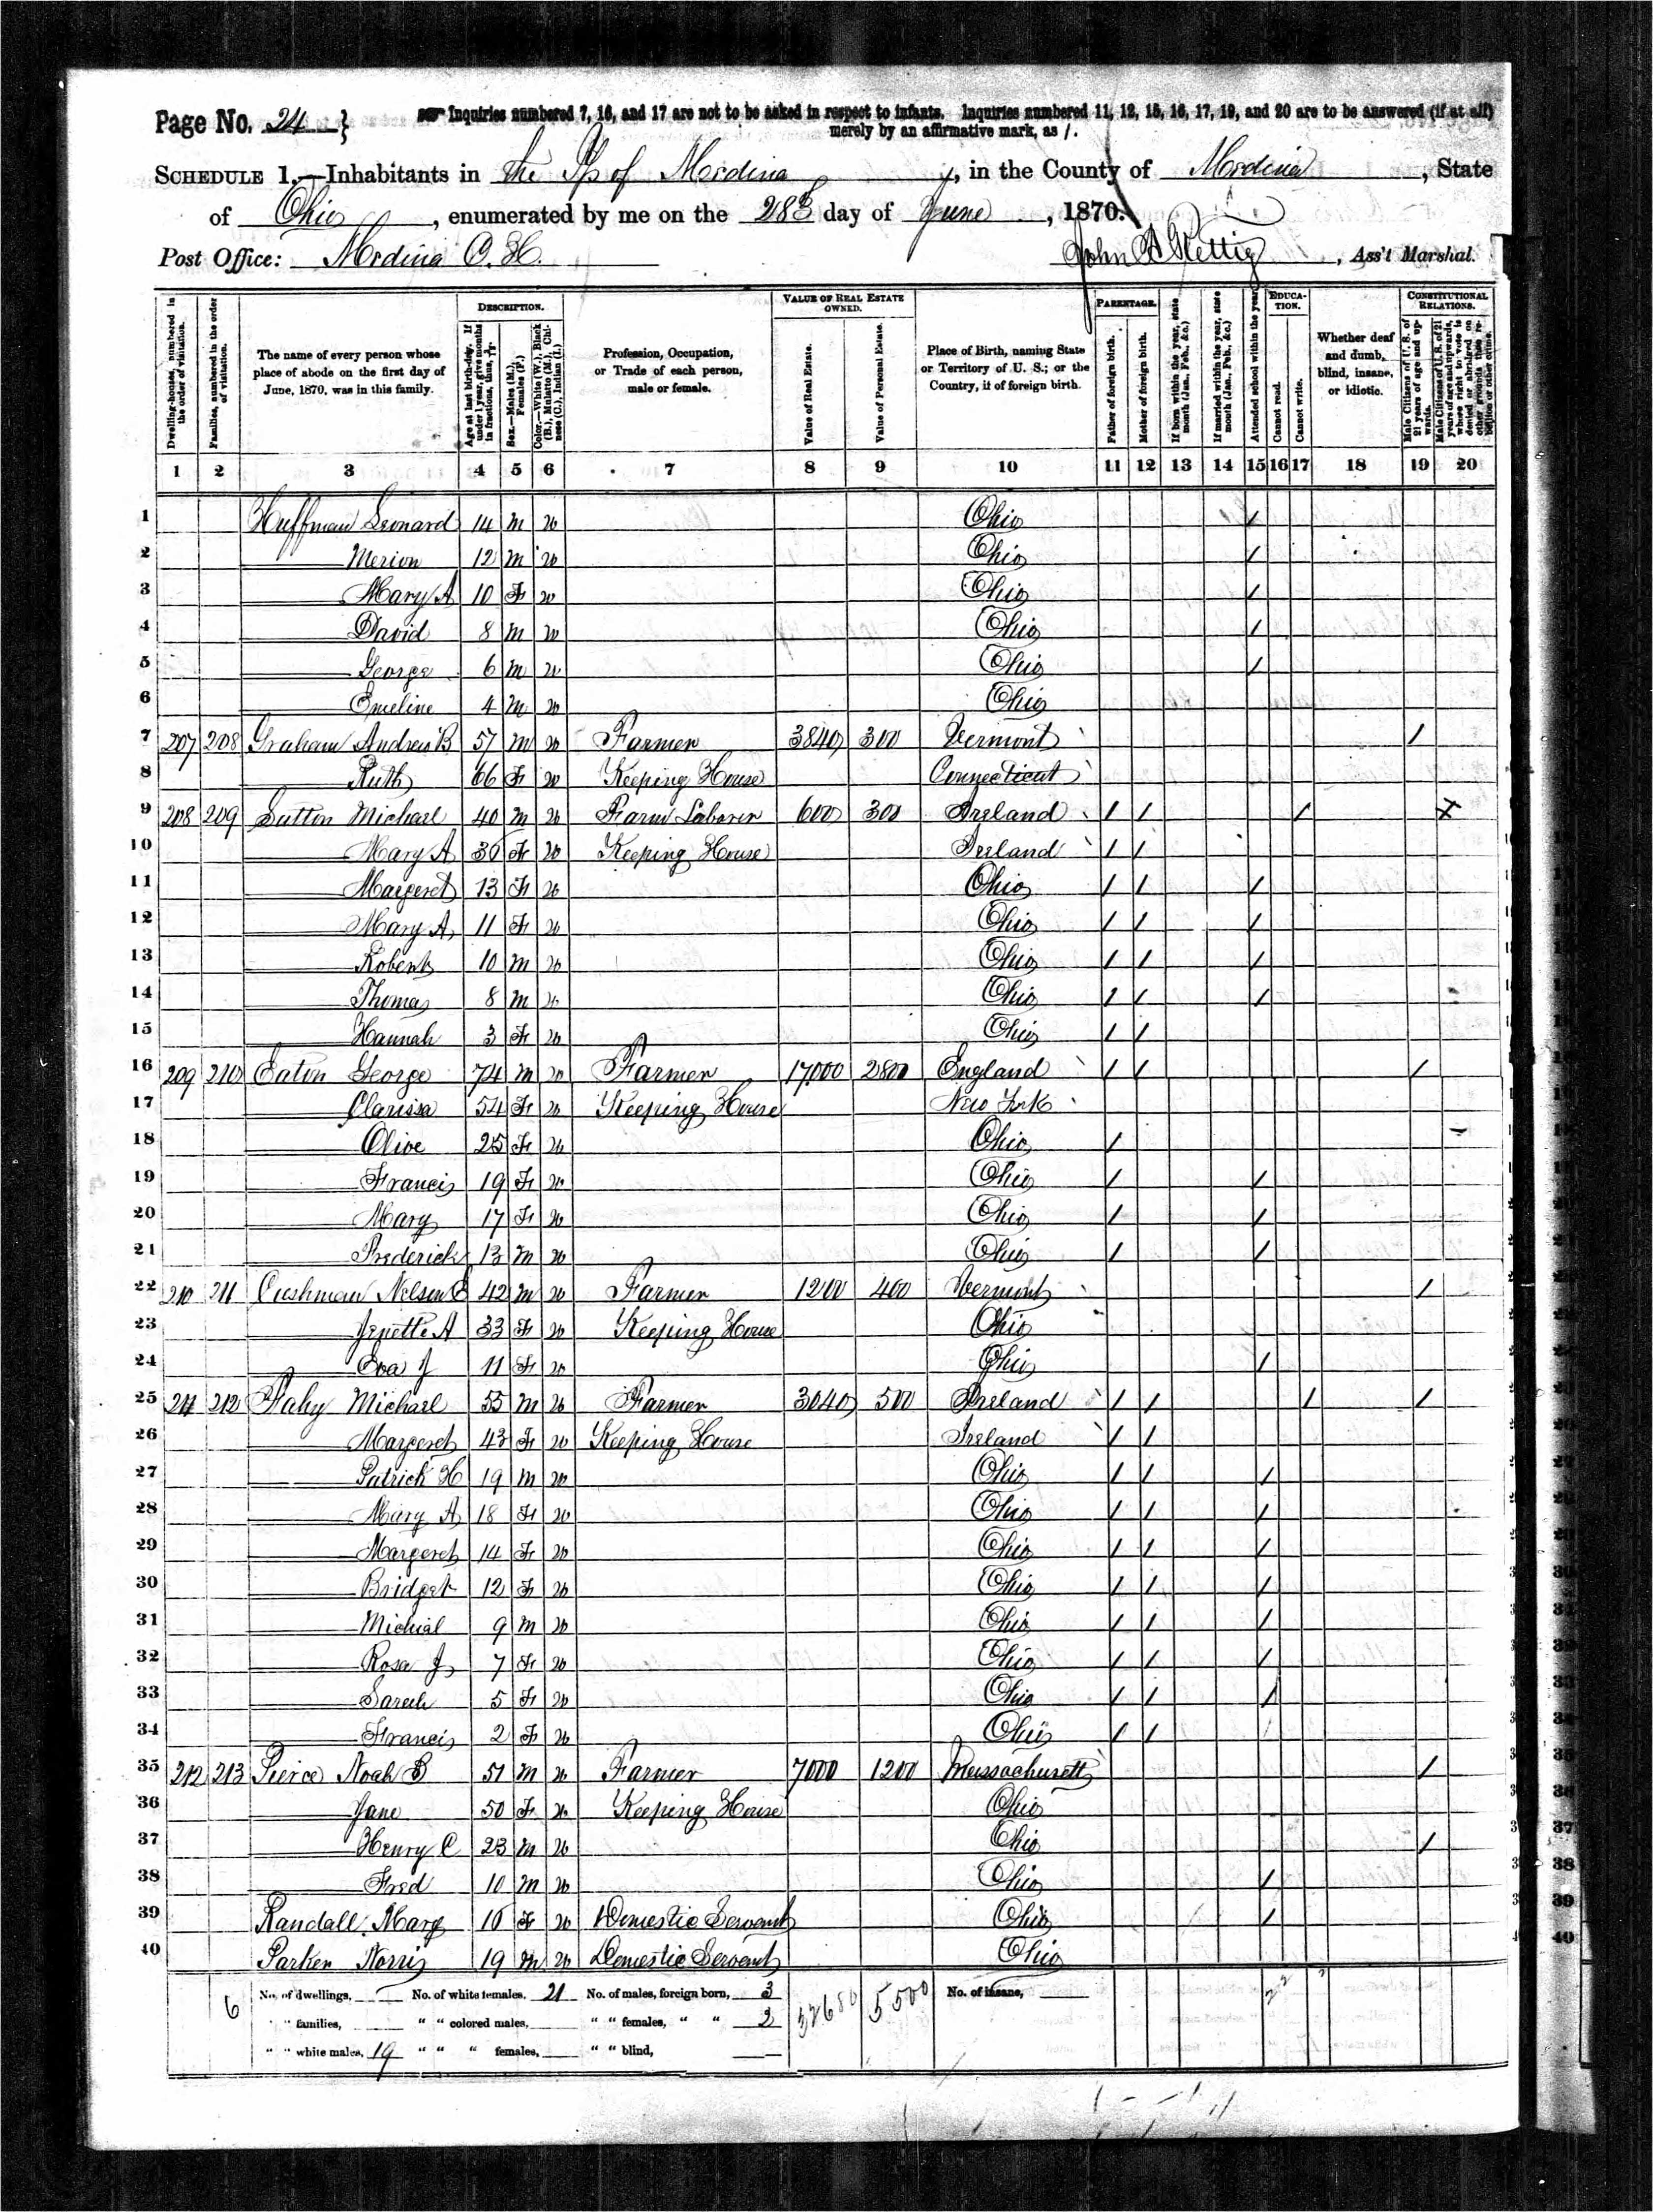 Page No. 24 }
Inquiries numbered 7, 16, and 17 are not to be asked in respect to infants. Inquiries numbered 11, 12, 15, 16, 17, 19, and 20 are to be answered (if at all)
merely by an affirmative mark, as /.
SCHEDULE 1.—Inhabitants in the Tp of Medina, in the County of Medina, State
of Ohio, enumerated by me on the 28th day of June, 1870.
Post Office: Medina C. H. John A Rettig, Ass't Marshal.
DESCRIPTION. VALUE OF REAL ESTATE OWNED. PARENTAGE. EDUCATION. CONSTITUTIONAL RELATIONS.
Dwelling-houses, numbered in the order of visitation.
Families, numbered in the order of visitation.
The name of every person whose place of abode on the first day of June, 1870, was in this family.
Age at last birth-day. If under 1 year, give months in fractions, thus,
Sex.—Males (M.), Females (F.)
Color.—White (W.), Black (B.), Mulatto (M.), Chinese (C.), Indian (I.)
Profession, Occupation, or Trade of each person, male or female.
Value of Real Estate.
Value of Personal Estate.
Place of Birth, naming State or Territory of U. S.; or the Country, if of foreign birth.
Father of foreign birth.
Mother of foreign birth.
If born within the year, state month (Jan., Feb., &c.)
If married within the year, state month (Jan., Feb., &c.)
Attended school within the year.
Cannot read.
Cannot write.
Whether deaf and dumb, blind, insane, or idiotic.
Male Citizens of U. S. of 21 years of age and upwards.
Male Citizens of U. S. of 21 years of age and upwards, whose right to vote is denied or abridged on other grounds than rebellion or other crime.
1 2 3 4 5 6 7 8 9 10 11 12 13 14 15 16 17 18 19 20
1 Huffman Leonard 14 M W Ohio /
2 — Merion 12 M W Ohio /
3 — Mary A 10 F W Ohio /
4 — David 8 M W Ohio /
5 — George 6 M W Ohio /
6 — Emeline 4 M W Ohio
7 207 208 Graham Andrew B 57 M W Farmer 3840 300 Vermont /
8 — Ruth 66 F W Keeping House Connecticut
9 208 209 Sutton Michael 40 M W Farm Laborer 600 300 Ireland / / / X
10 — Mary A 36 F W Keeping House Ireland / /
11 — Margeret 13 F W Ohio / / /
12 — Mary A, 11 F W Ohio / / /
13 — Robert 10 M W Ohio / / /
14 — Thomas 8 M W Ohio / / /
15 — Hannah 3 F W Ohio / /
16 209 210 Eaton George 74 M W Farmer 17000 2800 England / / /
17 — Clarissa 54 F W Keeping House New York
18 — Olive 25 F W Ohio /
19 — Francis 19 F W Ohio / /
20 — Mary 17 F W Ohio / /
21 — Frederick 13 M W Ohio / /
22 210 211 Cushman Nelson 42 M W Farmer 1200 400 Vermont /
23 — Jenette A 33 F W Keeping House Ohio
24 — Eva J 11 F W Ohio /
25 211 212 Fahy Michael 55 M W Farmer 3040 500 Ireland / / / /
26 — Margeret 43 F W Keeping House Ireland / /
27 — Patrick H 19 M W Ohio / / /
28 — Mary A 18 F W Ohio / / /
29 — Margeret 14 F W Ohio / / /
30 — Bridget 12 F W Ohio / / /
31 — Michial 9 M W Ohio / / /
32 — Rosa J 7 F W Ohio / / /
33 — Sarah 5 F W Ohio / / /
34 — Francis 2 F W Ohio / /
35 212 213 Pierce Noah B 51 M W Farmer 7000 1200 Massachusetts /
36 — Jane 50 F W Keeping House Ohio
37 — Henry C 23 M W Ohio /
38 — Fred 10 M W Ohio /
39 Randall Mary 16 F W Domestic Servant Ohio /
40 Parker Norris 19 M W Domestic Servant Ohio
6 No. of dwellings, No. of white females, 21 No. of males, foreign born, 3 32680 5500 No. of insane, 22
" " families, " " colored males, " " females, " " 2
" " white males, 19 " " " females, " " blind,